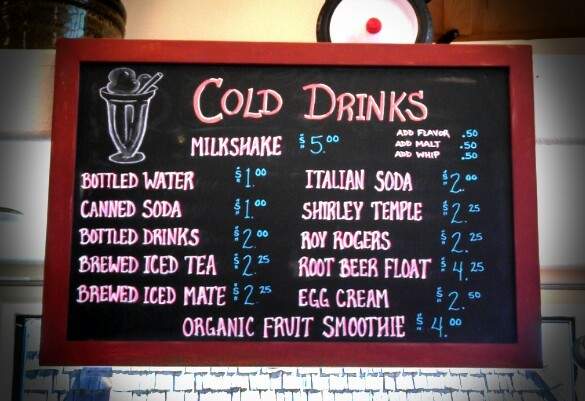 COLD DRINKS
MILKSHAKE $5.00
ADD FLAVOR .50
ADD MALT .50
ADD WHIP .50
BOTTLED WATER $1.00
CANNED SODA $1.00
BOTTLED DRINKS $2.00
BREWED ICED TEA $2.25
BREWED ICED MATE $2.25
ITALIAN SODA $2.00
SHIRLEY TEMPLE $2.25
ROY ROGERS $2.25
ROOT BEER FLOAT $4.25
EGG CREAM $2.50
ORGANIC FRUIT SMOOTHIE $4.00